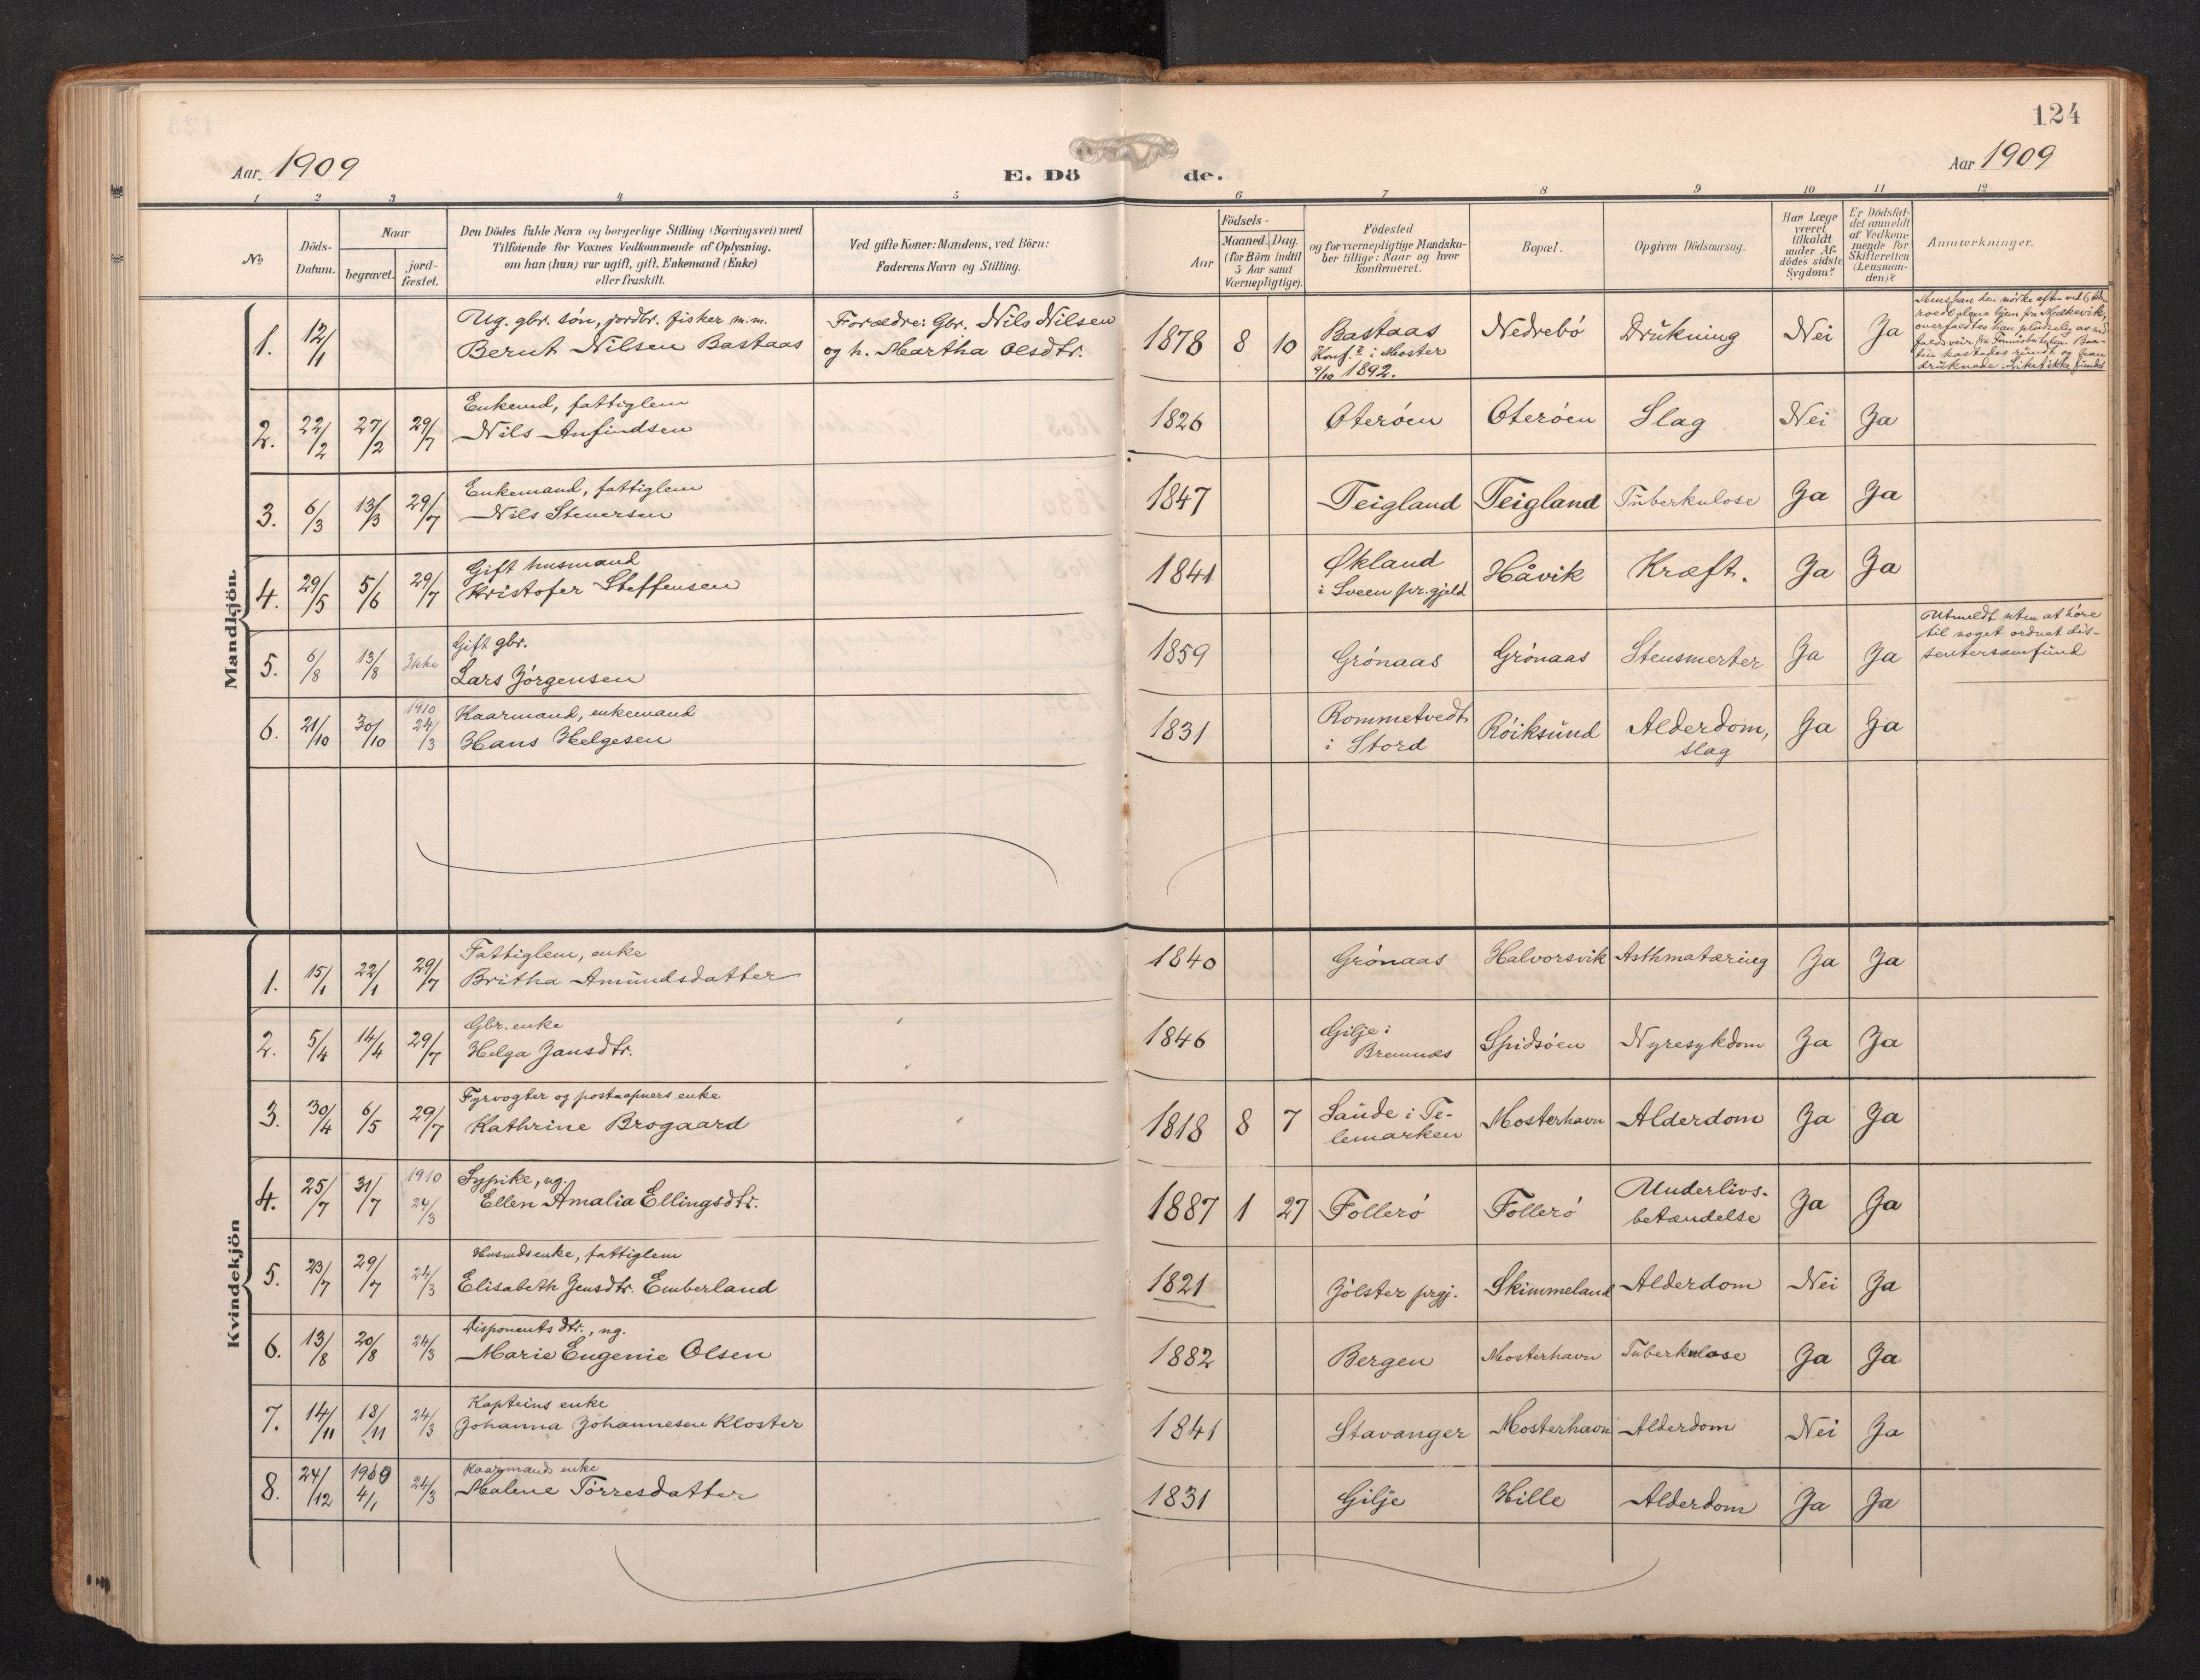 124
Aar 1909
E. Döde.
Aar 1909
1 2 3 4 5 6 7 8 9 10 11 12
No
Döds-Datum.
Naar
begravet.
jord-fæstet.
Den Dödes fulde Navn og borgerlige Stilling (Næringsvei) med
Tilföiende for Voxnes Vedkommende af Oplysning,
om han (hun) var ugift, gift, Enkemand (Enke)
eller fraskilt.
Ved gifte Koner: Mandens, ved Börn:
Faderens Navn og Stilling.
Födsels-
Aar
Maaned. Dag.
(for Börn indtil
5 Aar samt
Værnepligtige).
Födested
og for værnepligtige Mandska-
ber tillige: Naar og hvor
konfirmeret.
Bopæl.
Opgiven Dödsaarsag.
Har Læge
været
tilkaldt
under Af-
dödes sidste
Sygdom?
Er Dödsfal-
det anmeldt
af Vedkom-
mende for
Skifteretten
(Lensman-
den)?
Anmærkninger.
Mandkjön.
1. 12/1 Ug. gbr. søn, jordbr. fisker m.m.
Bernt Nilsen Bastaas
Forældre: Gbr. Nils Nilsen
og h. Martha Olsdtr.
1878 8 10 Bastaas
Konf. i Moster
9/10 1892.
Nedrebö Drukning Nei Ja
han den mörke aften ved 6 tiden
roede alene hjem fra
overfaldtes han pludselig av
kastedes rundt og han
druknede. Liket ikke fundet
2. 22/2 27/2 29/7 Enkemd, fattiglem
Nils Anfindsen
1826 Oteröen Oteröen Slag Nei Ja
3. 6/3 13/3 29/7 Enkemand, fattiglem
Nils Stenersen
1847 Teigland Teigland Tuberkulose Ja Ja
4. 29/5 5/6 29/7 Gift husmand
Kristofer Steffensen
1841 Økland
i Sveen pr.gjeld
Håvik Kræft. Ja Ja
5. 6/8 13/8 Ikke Gift gbr.
Lars Jörgensen
1859 Grönaas Grönaas Stensmerter Ja Ja
Utmeldt uten at höre
til noget ordnet dis-
sentersamfund
6. 21/10 30/10 1910 24/3 Kaarmand, enkemand
Hans Helgesen
1831 Rommetvedt
i Stord
Röiksund Alderdom,
slag
Ja Ja
Kvindekjön
1. 15/1 22/1 29/7 Fattiglem, enke
Britha Amundsdatter
1840 Grönaas Halvorsvik Asthmatæring Ja Ja
2. 5/4 14/4 29/7 Gbr. enke
Helga Jansdtr.
1846 Gilje i
Bremnes
Spidsöen Nyresykdom Ja Ja
3. 30/4 6/5 29/7 Fyrvogter og postaapners enke
Kathrine Brogaard
1818 8 7 Saude i Te-
lemarken
Mosterhavn Alderdom Ja Ja
4. 25/7 31/7 1910 24/3 Sypike, ug.
Ellen Amalia Ellingsdtr.
1887 1 27 Follerö Follerö Underlivs-
betændelse
Ja Ja
5. 23/7 29/7 24/3 Husmdsenke, fattiglem
Elisabeth Jensdtr. Emberland
1821 Jölster prgj. Skimmeland Alderdom Nei Ja
6. 13/8 20/8 24/3 Disponents dtr., ug.
Marie Eugenie Olsen
1882 Bergen Mosterhavn Tuberkulose Ja Ja
7. 14/11 18/11 24/3 Kapteins enke
Johanna Johannesen Kloster
1841 Stavanger Mosterhavn Alderdom Nei Ja
8. 24/12 4/1 24/3 Kaarmands enke
Malene Törresdatter
1831 Gilje Hille Alderdom Ja Ja